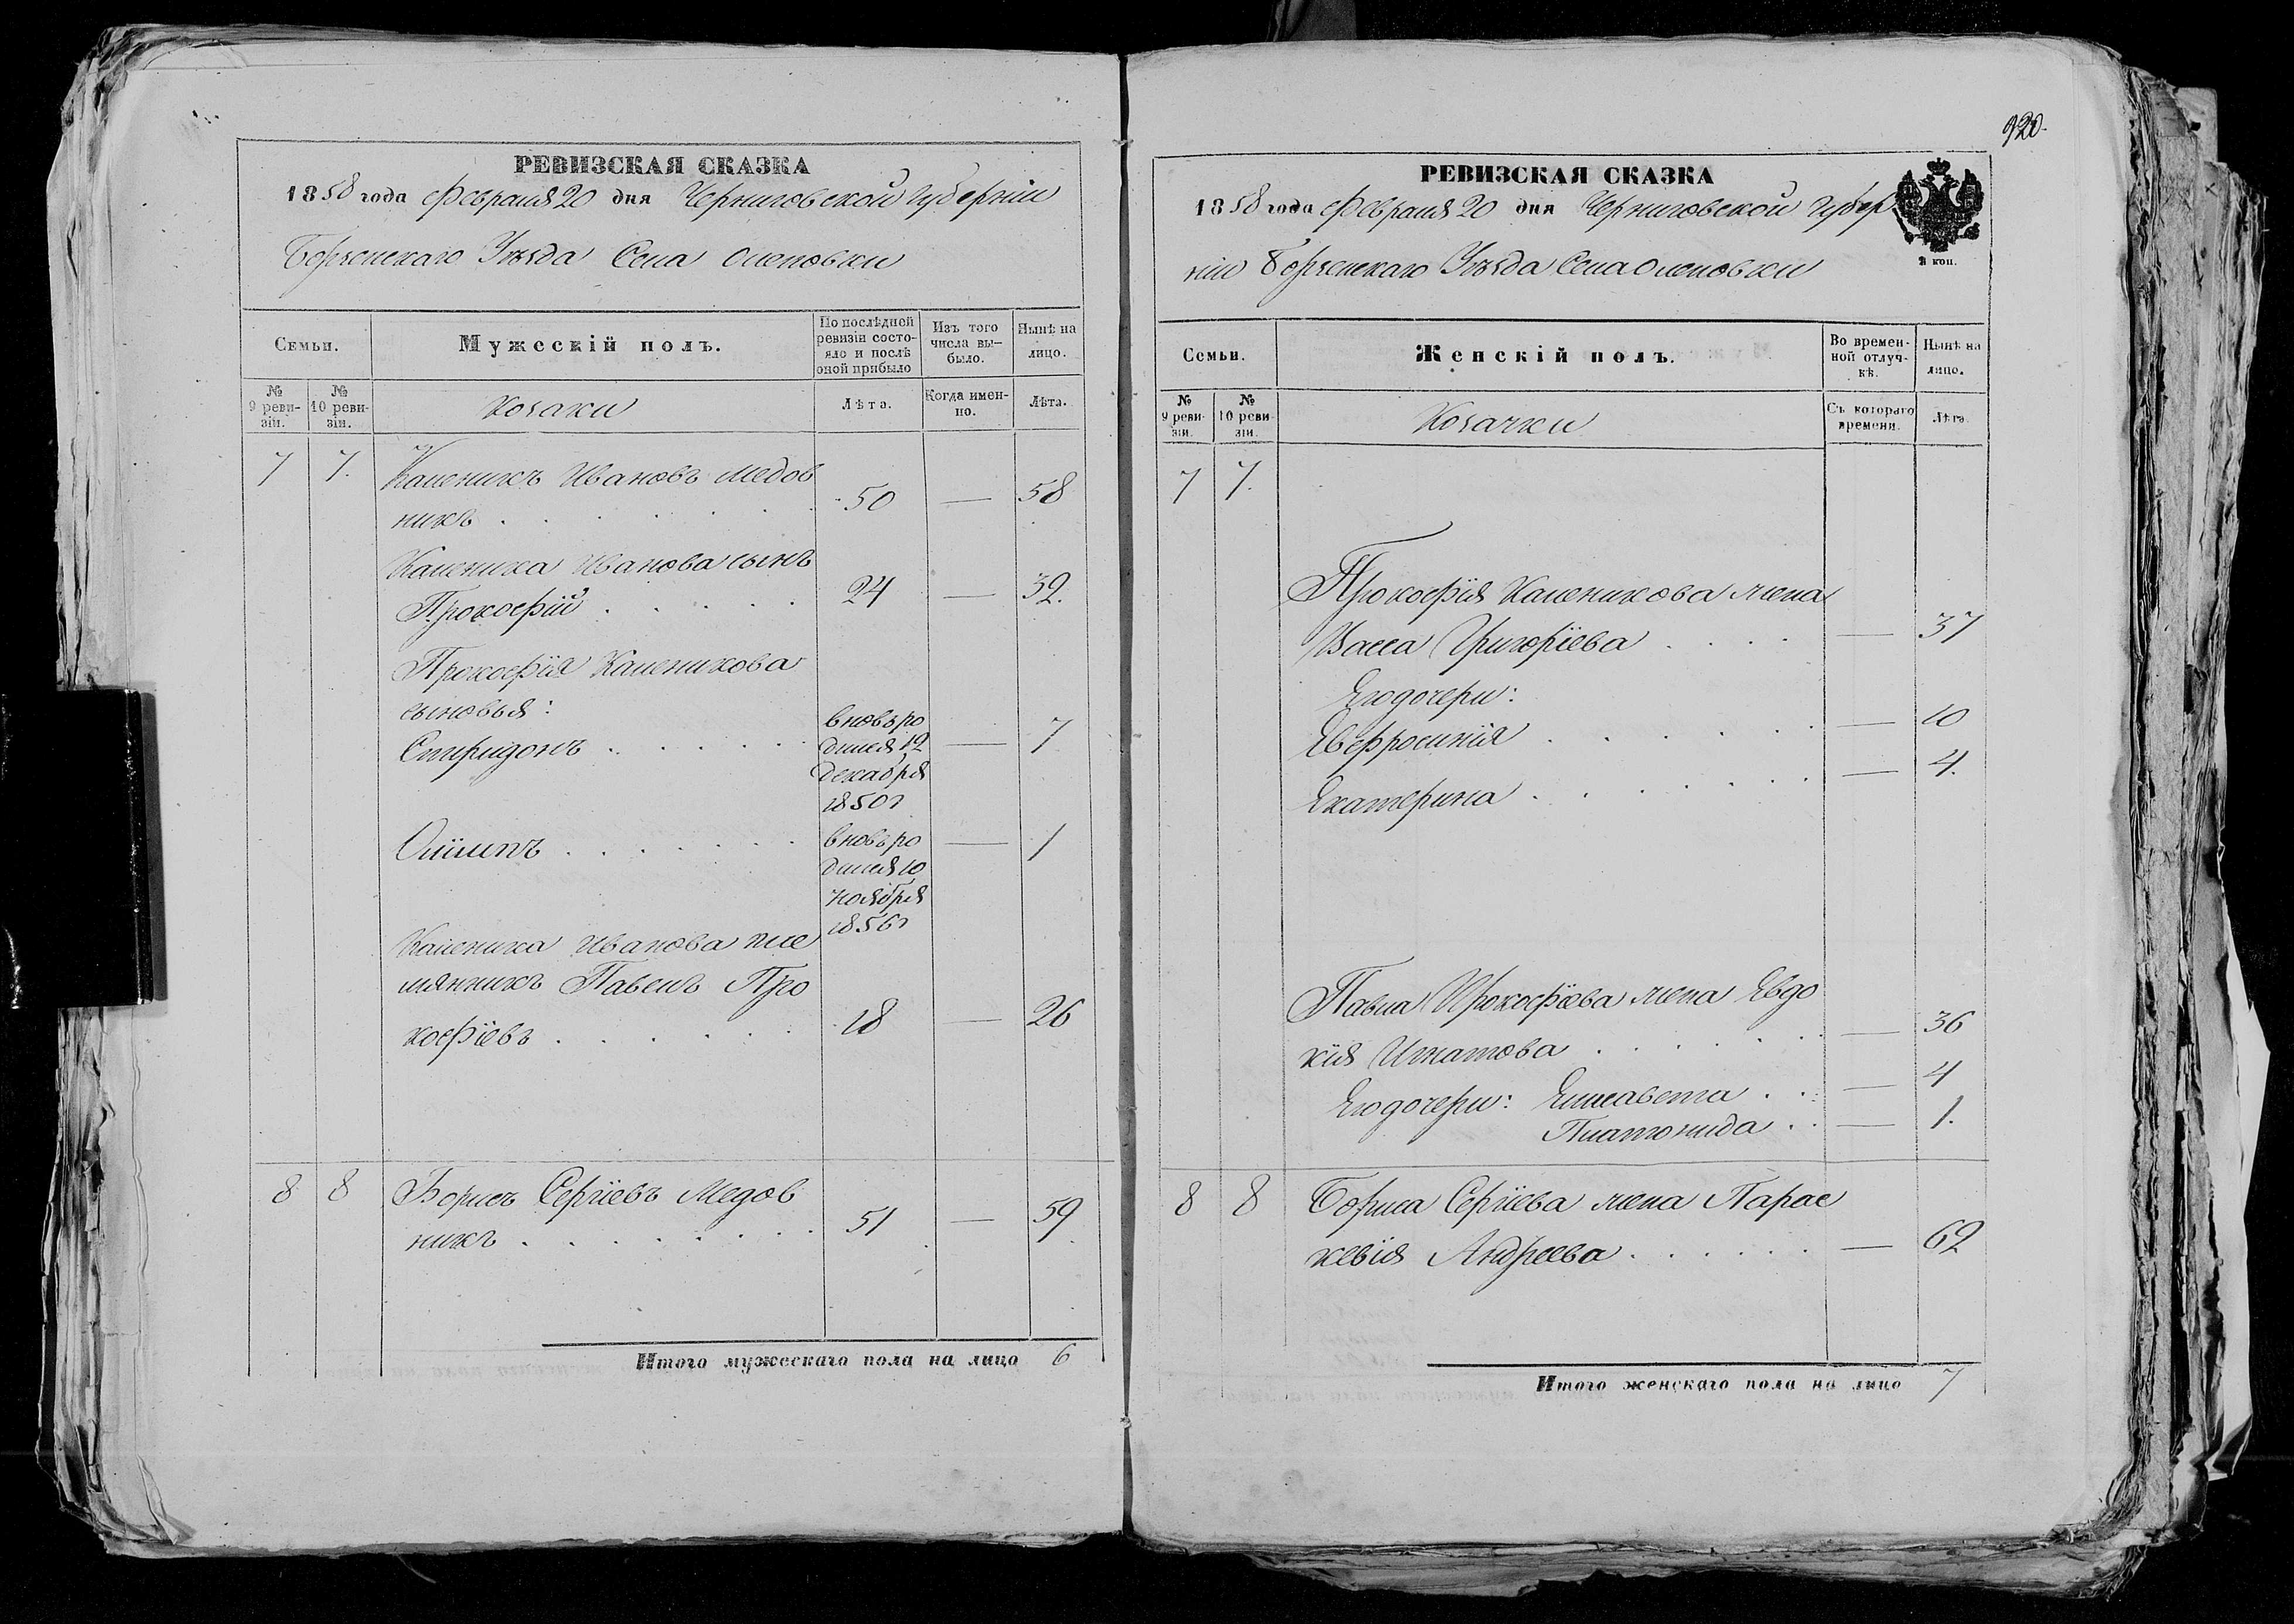 РЕВИЗСКАЯ СКАЗКА
1858 года Февраля 20 дня Черниговской Губерніи
Борзенскаго Уѣзда Села Оленовки
Семьи.
Мужескій полъ.
По послѣдней ревизіи состояло и послѣ оной прибыло
Изъ того числа выбыло.
Нынѣ на лицо.
№ 9 ревизіи.
№ 10 ревизіи.
Козаки
Лѣта.
Когда именно.
Лѣта.
7 7. Каленикъ Ивановъ Медов
никъ . 50 — 58
Каленика Иванова сынъ
Прокофій . 24 — 32.
Прокофія Каленикова
сыновья:
Спиридонъ . вновь ро
дился 12 — 7
декабря
1850 г
Олімпъ . вновь ро — 1
дился 10
ноября
1856 г
Каленика Иванова пле
мянникъ Павелъ Про
кофіевъ . 18 — 26
8 8 Борисъ Сергіевъ Медов
никъ . 51 — 59
Итого мужескаго пола на лицо 6
920.
РЕВИЗСКАЯ СКАЗКА
1858 года Февраля 20 дня Черниговской Губер
ніи Борзенскаго Уѣзда Села Оленовки
коп.
Семьи.
Женскій полъ.
Во временной отлучкѣ.
Нынѣ на лицо.
№ 9 ревизіи.
№ 10 ревизіи.
Козачки
Съ котораго времени.
Лѣта.
7 7.
Прокофія Каленикова жена
Васса Григоріева . — 37
Его дочери:
Евфросинія . — 10
Екатерина . — 4.
Павла Прокофіева жена Евдо
кія Игнатова . — 36
Его дочери: Елисавета . — 4
Платонида . — 1.
8 8 Бориса Сергіева жена Парас
кевія Андреева . — 62
Итого женскаго пола на лицо 7